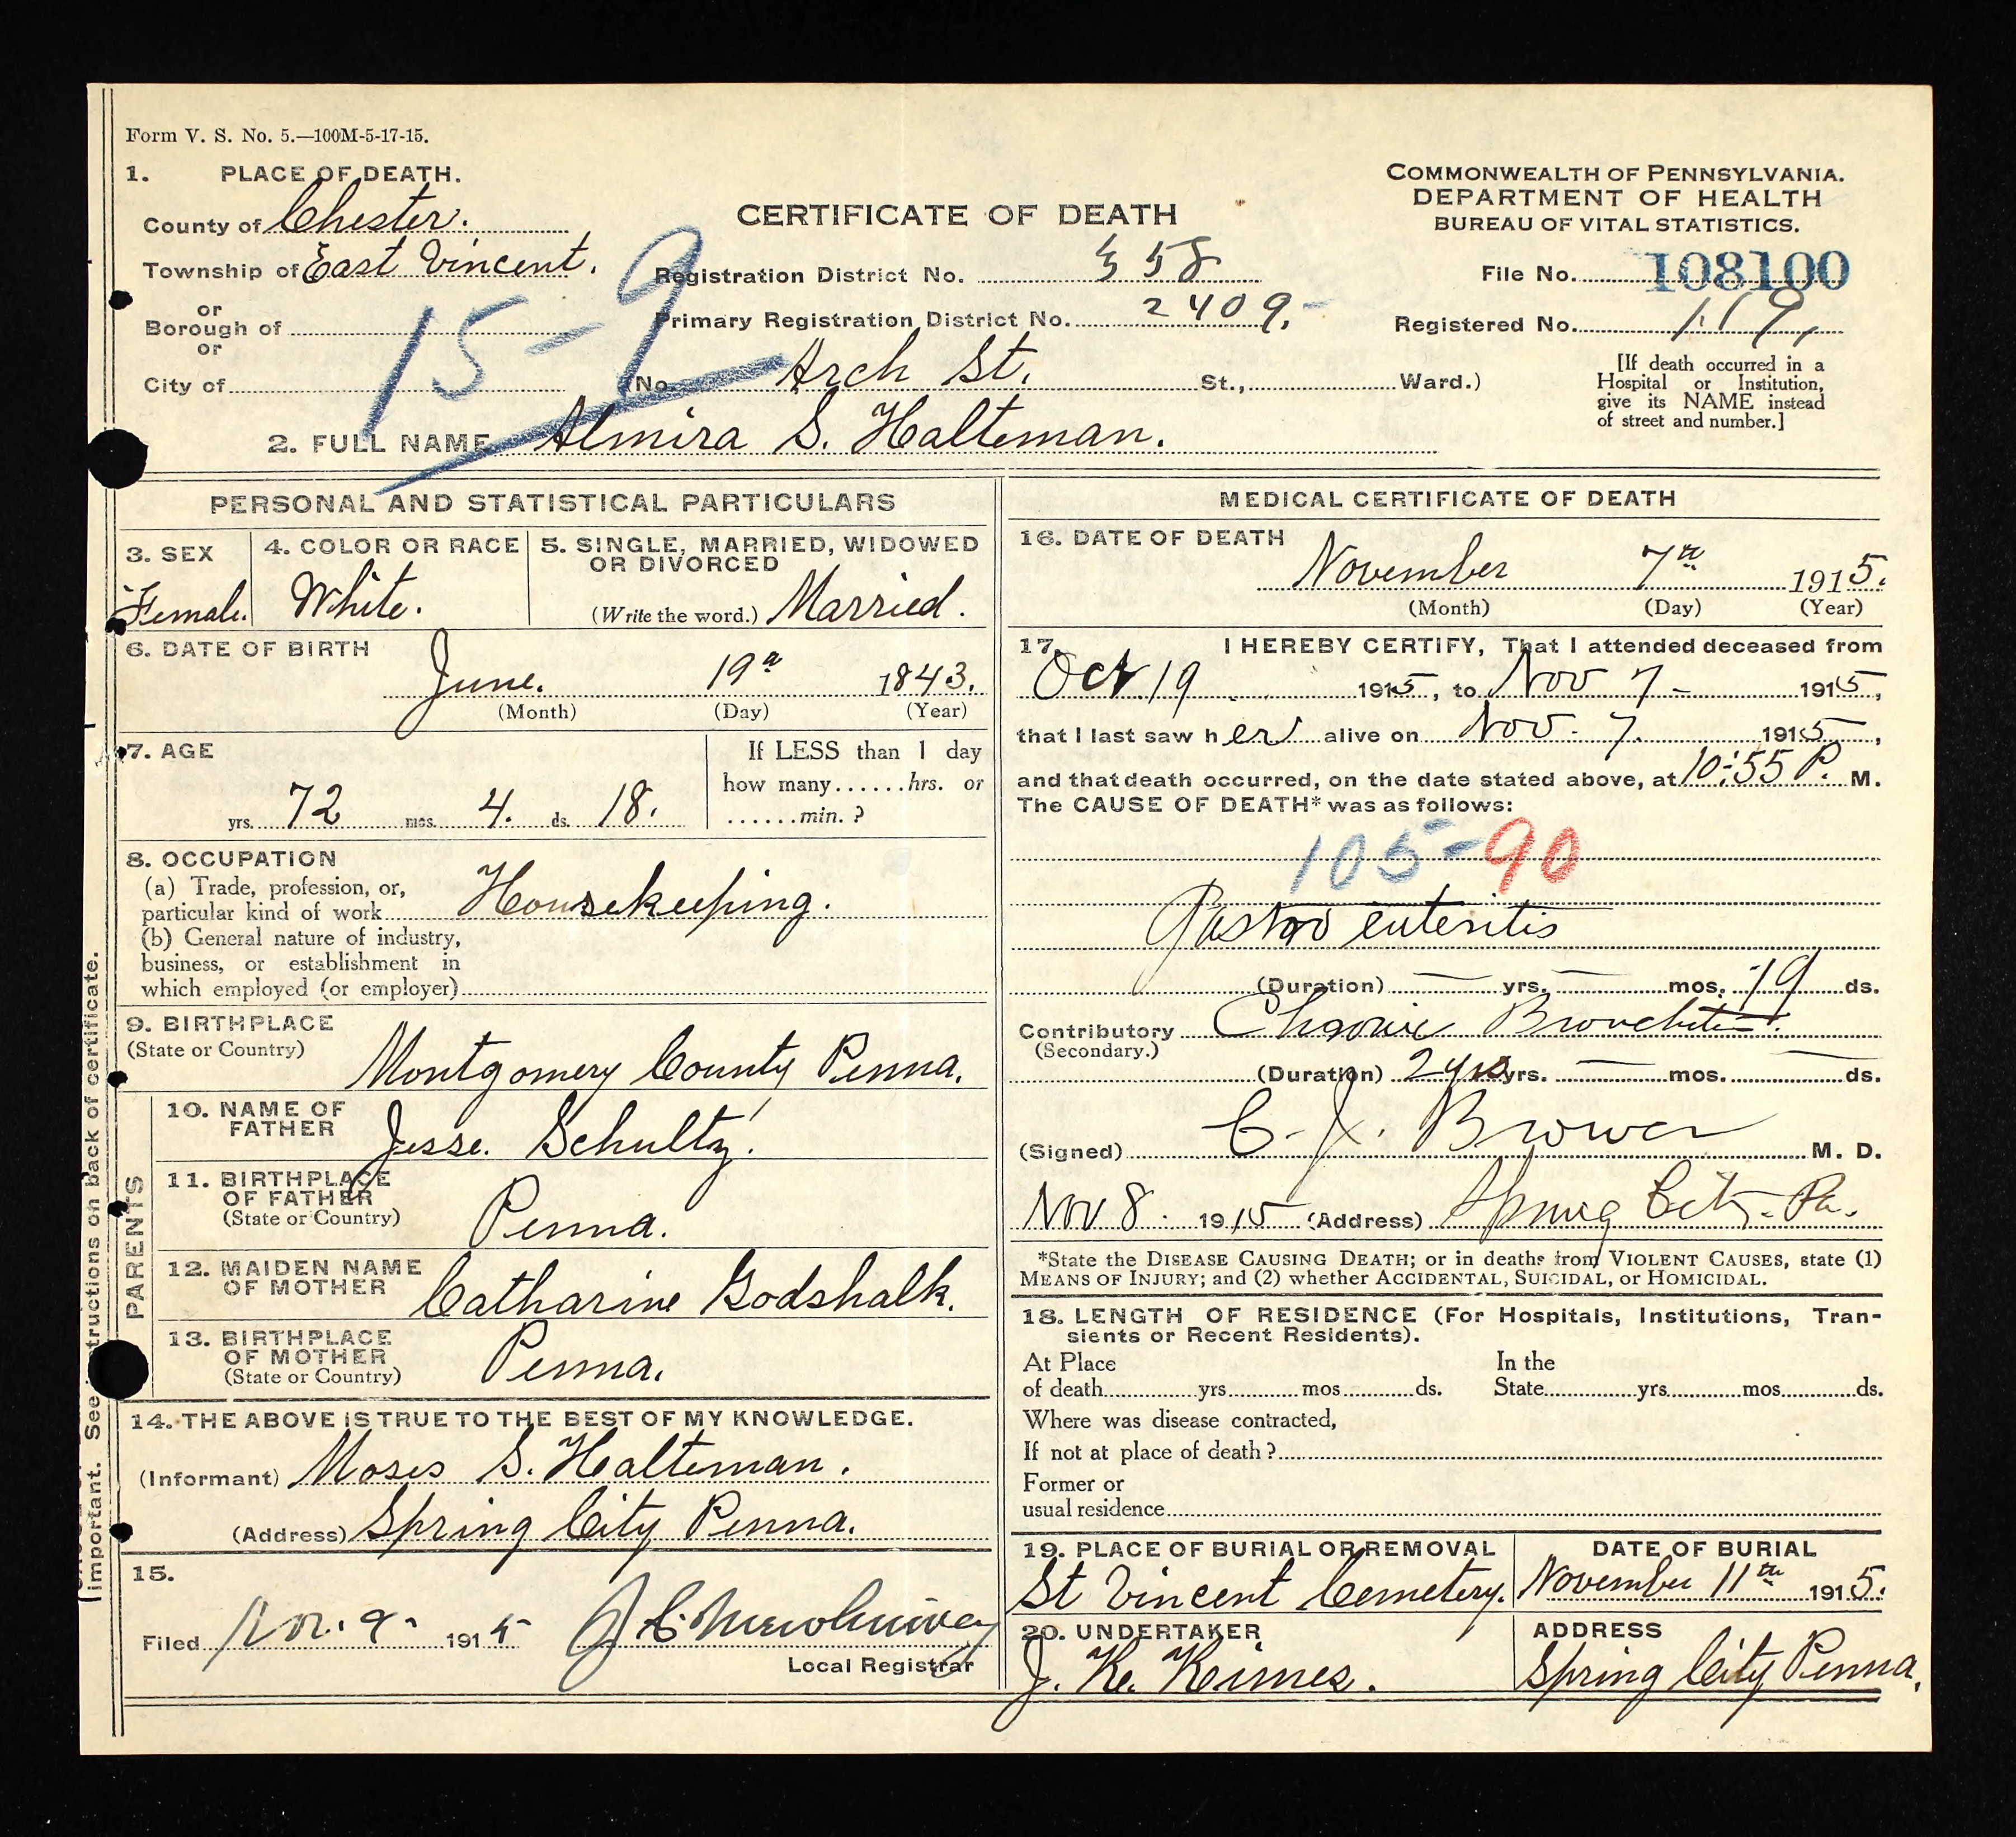 Form V. S. No. 5.—100M-5-17-15.
1. PLACE OF DEATH.
County of Chester.
Township of East Vincent.
or
Borough of
or
City of
15-9
CERTIFICATE OF DEATH
Registration District No. 358
Primary Registration District No. 2409.-
(No. Arch St. St., Ward.)
COMMONWEALTH OF PENNSYLVANIA.
DEPARTMENT OF HEALTH
BUREAU OF VITAL STATISTICS.
File No. 108100
Registered No. 119,
[If death occurred in a
Hospital or Institution,
give its NAME instead
of street and number.]
2. FULL NAME Almira S. Halteman.
PERSONAL AND STATISTICAL PARTICULARS
3. SEX
Female.
4. COLOR OR RACE
White.
5. SINGLE, MARRIED, WIDOWED
OR DIVORCED
(Write the word.) Married.
6. DATE OF BIRTH
June. 19 1843.
(Month) (Day) (Year)
7. AGE
yrs. 72 mos. 4. ds. 18.
If LESS than 1 day
how many......hrs. or
......min. ?
8. OCCUPATION
(a) Trade, profession, or,
particular kind of work Housekeeping.
(b) General nature of industry,
business, or establishment in
which employed (or employer)
9. BIRTHPLACE
(State or Country)
Montgomery County Penna.
PARENTS
10. NAME OF
FATHER
Jesse. Schultz.
11. BIRTHPLACE
OF FATHER
(State or Country)
Penna.
12. MAIDEN NAME
OF MOTHER
Catharine Godshalk.
13. BIRTHPLACE
OF MOTHER
(State or Country)
Penna.
14. THE ABOVE IS TRUE TO THE BEST OF MY KNOWLEDGE.
(Informant) Moses S. Halteman.
(Address) Spring City Penna.
15.
Filed Nov. 9 - 1915
Local Registrar
MEDICAL CERTIFICATE OF DEATH
16. DATE OF DEATH
November 7th 1915.
(Month) (Day) (Year)
17. I HEREBY CERTIFY, That I attended deceased from
Oct 19 1915, to Nov 7 - 1915,
that I last saw her alive on Nov. 7. 1915,
and that death occurred, on the date stated above, at 10:55 P. M.
The CAUSE OF DEATH* was as follows:
105-90
Gastro enteritis
(Duration) — yrs. — mos. 19 ds.
Contributory Chronic Bronchitis.
(Secondary.)
(Duration) 2 yrs yrs. — mos. — ds.
(Signed) C. J. Brower M. D.
Nov 8. 1915 (Address) Spring City. Pa.
*State the DISEASE CAUSING DEATH; or in deaths from VIOLENT CAUSES, state (1)
MEANS OF INJURY; and (2) whether ACCIDENTAL, SUICIDAL, or HOMICIDAL.
18. LENGTH OF RESIDENCE (For Hospitals, Institutions, Tran-
sients or Recent Residents).
At Place In the
of death yrs mos ds. State yrs mos ds.
Where was disease contracted,
If not at place of death ?
Former or
usual residence
19. PLACE OF BURIAL OR REMOVAL
St Vincent Cemetery.
DATE OF BURIAL
November 11th 1915.
20. UNDERTAKER
J. Ke. Keimes.
ADDRESS
Spring City Penna.
important. See instructions on back of certificate.